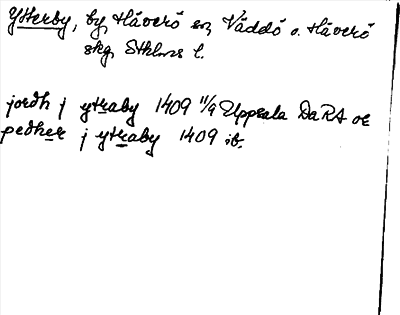 Ytterby, by, Häverö sn, Väddö o. Häverö
skg, Sthlms l.
jordh j ytraby 1409 11/9 Uppsala DaRA or
pedher j ytraby 1409 ib.